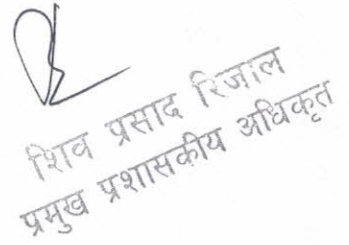 शिव प्रसाद रिजाल
प्रमुख प्रशासकीय अधिकृत